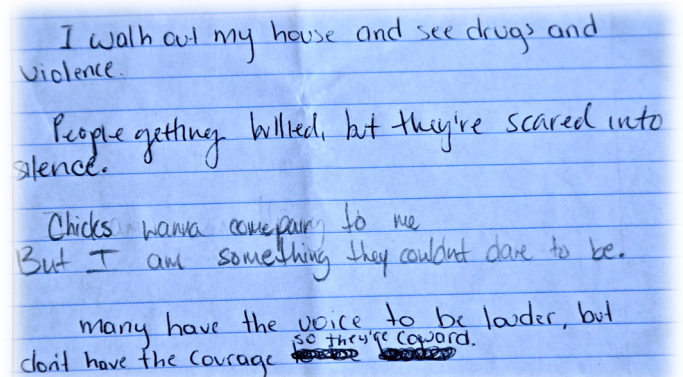 I walk out my house and see drugs and
violence.
People getting bullied, but they're scared into
silence.
Chicks wanna comepair to me
But I am something they couldnt dare to be.
many have the voice to be louder, but
so they're coward.
don't have the courage